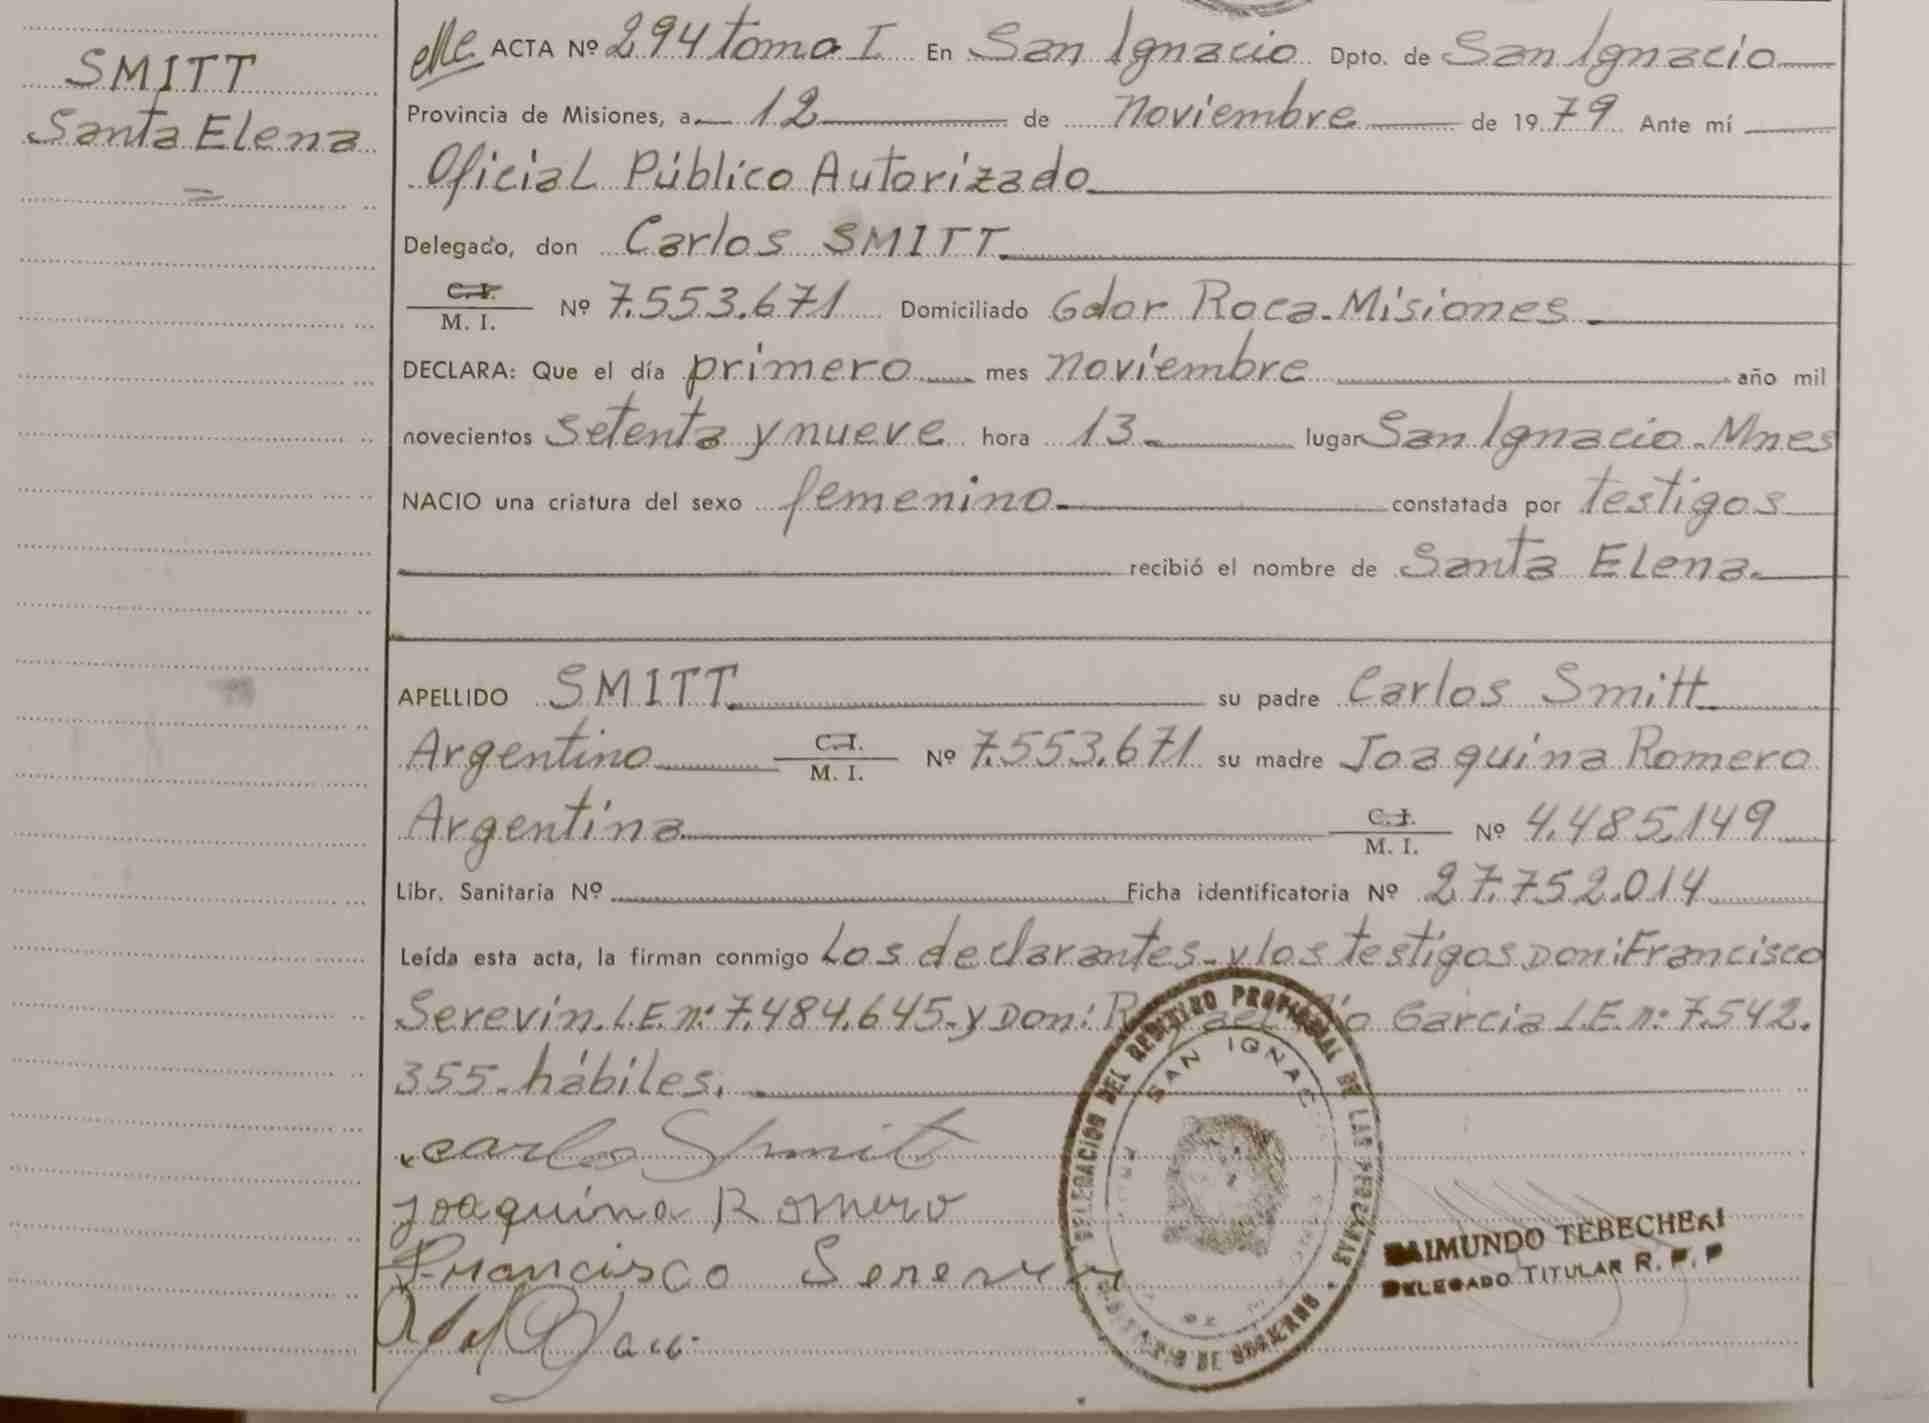 SMITT
Santa Elena
ACTA Nº 294 tomo I En San Ignacio Dpto. de San Ignacio
Provincia de Misiones, a 12 de noviembre de 1979 Ante mí
Oficial Público Autorizado
Delegado, don Carlos SMITT
C. I.
M. I. Nº 7.553.671 Domiciliado Gdor Roca - Misiones
DECLARA: Que el día primero mes noviembre año mil
novecientos setenta y nueve hora 13 lugar San Ignacio - Mnes
NACIO una criatura del sexo femenino constatada por testigos
recibió el nombre de Santa Elena
APELLIDO SMITT su padre Carlos Smitt
Argentino C. I.
M. I. Nº 7.553.671 su madre Joaquina Romero
Argentina C. I.
M. I. Nº 4.485.149
Libr. Sanitaria Nº Ficha identificatoria Nº 27.752.014
Leída esta acta, la firman conmigo Los declarantes - y los testigos Don: Francisco
Serevin. L.E. nº 7.484.645 - y Don: Garcia L.E. nº 7.542.
355 - hábiles.
carlos Shmit
Joaquina Romero
Francisco Sereven
DELEGACION DEL REGISTRO PROVINCIAL DE LAS PERSONAS
SAN IGNACIO
DE GOBIERNO
RAIMUNDO TEBECHERI
DELEGADO TITULAR R. P. P